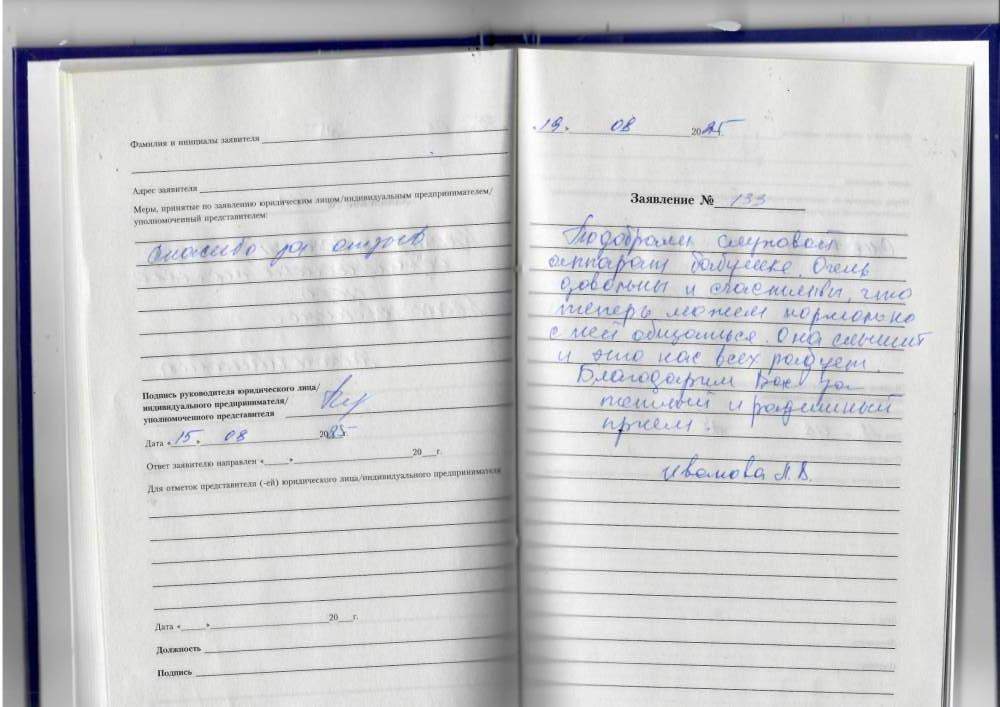 Фамилия и инициалы заявителя
Адрес заявителя
Меры, принятые по заявлению юридическим лицом/индивидуальным предпринимателем/
уполномоченный представителем:
Спасибо за отзыв
Подпись руководителя юридического лица/
индивидуального предпринимателя/
уполномоченного представителя
Дата «15» 08 2025 г.
Ответ заявителю направлен «____»____20___г.
Для отметок представителя (-ей) юридического лица/индивидуального предпринимателя
Дата «____»____20___г.
Должность
Подпись
«19» 08 2025
Заявление № 133
Подобрали слуховой
аппарат бабушке. Очень
довольны и счастливы, что
теперь можем нормально
с ней общаться. Она слышит
и это нас всех радует.
Благодарим Вас за
теплый и радушный
прием.
Иванова Л.В.